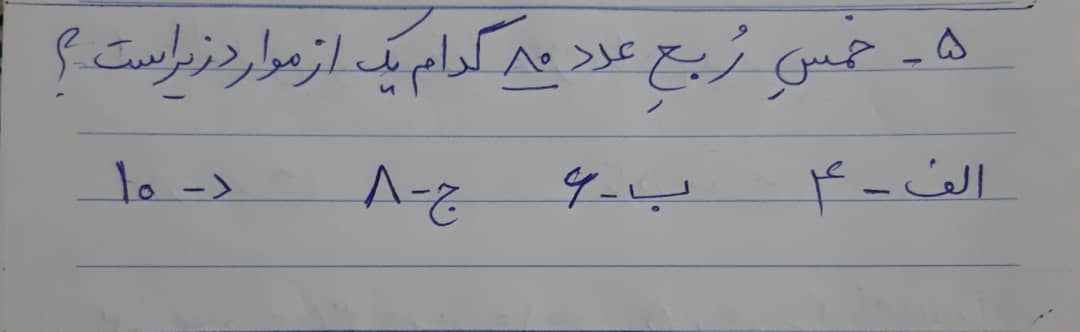 ۵- خمسِ رُبعِ عدد ۸۰ کدام یک از موارد زیر است ؟
الف - ۴ ب - ۶ ج - ۸ د - ۱۰